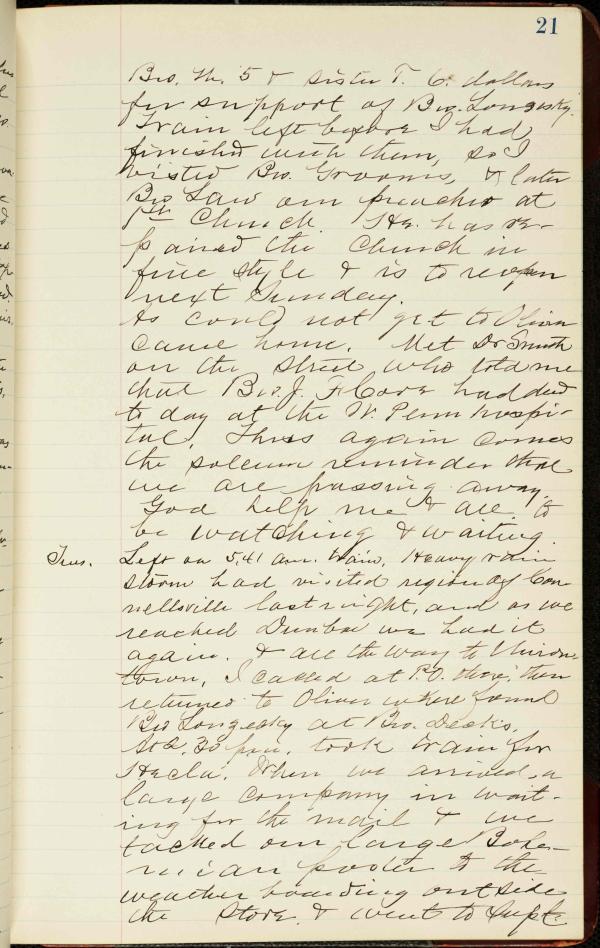 21
Bro. M. 5 & sister T. 6. dollars
for support of Bro. Longesky.
Train left before I had
finished with them, so I
visted Bro. Grooms, & later
Bro Law our preacher at
1st Church. He. has re-
paired the Church in
fine style & is to reopen
next Sunday.
As could not get to Oliver
came home. Met Dr Smith
on the street who told me
that Bro. J. F. Core had died
to day at the W. Penn hospi-
tal. Thus again comes
the solemn reminder that
we are passing away.
God help me & all to
be watching & waiting.
Tues. Left on 5,41 am. train. Heavy rain
storm had visited region of Con
nellsville last night, and as we
reached Dunbar we had it
again. & all the way to Union-
town, I called at P.O. there, then
returned to Oliver where found
Bro Longesky at Bro. Deek's.
At 2.30 pm. took train for
Hecla. When we arrived, a
large company in wait-
ing for the mail & we
tacked our large Bohe-
mian poster to the
weather boarding outside
the store. & went to Supt.